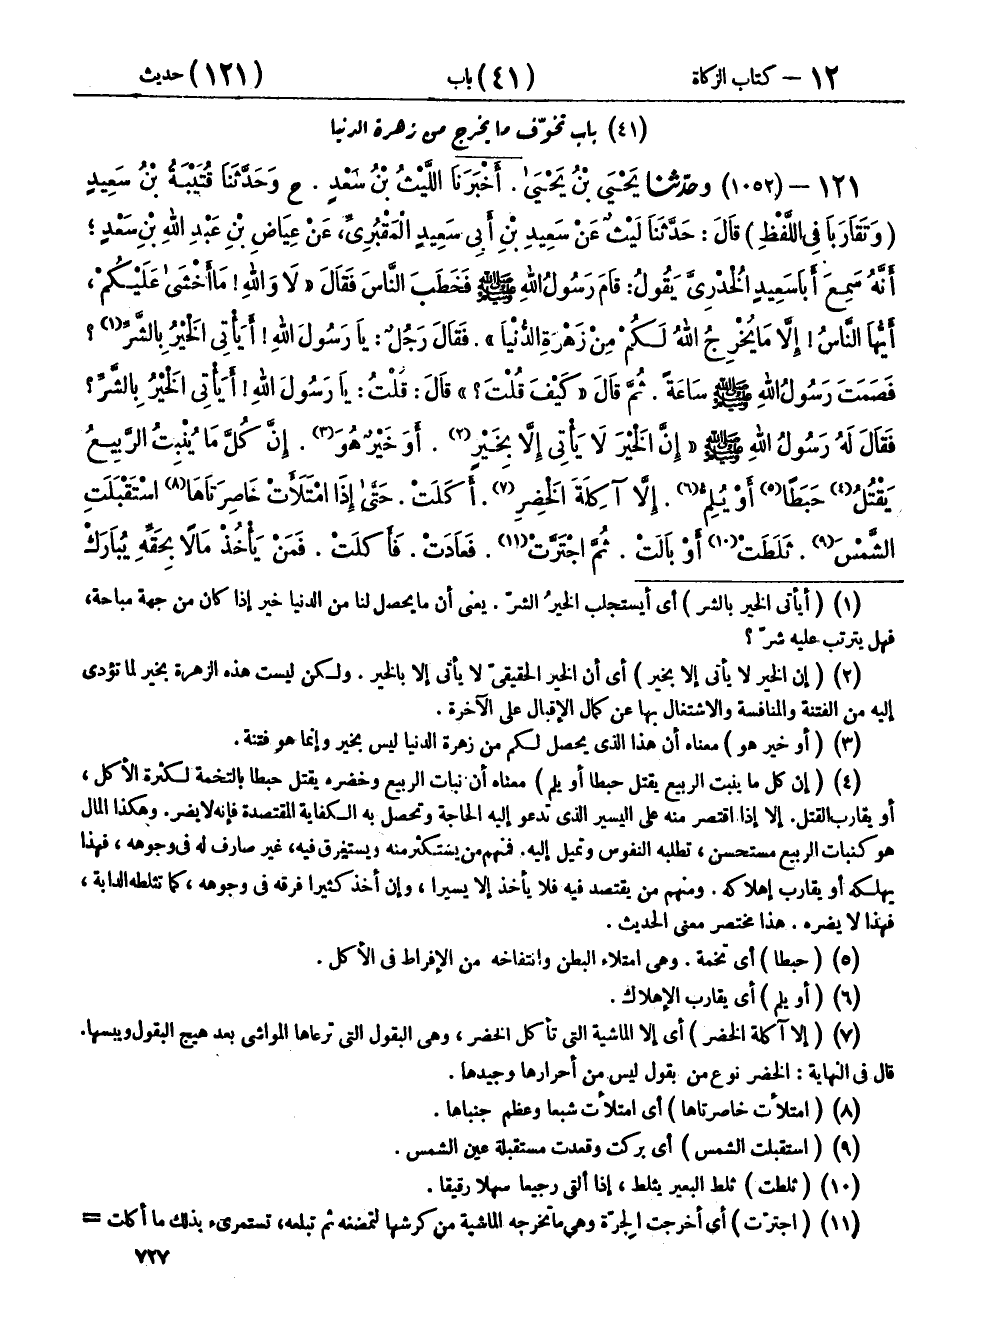 ١٢ – كتاب الزكاة (٤١) باب (١٢١) حديث
(٤١) باب تخوّف ما يخرج من زهرة الدنيا
١٢١ – (١٠٥٢) وحدّثنا يَحْيَى بْنُ يَحْيَىٰ. أَخْبَرَنَا اللَّيْثُ بْنُ سَعْدٍ. ح وَحَدَّثَنَا قُتَيْبَةُ بْنُ سَعِيدٍ
(وَتَقَارَبَا فِي اللَّفْظِ) قَالَ: حَدَّثَنَا لَيْثٌ عَنْ سَعِيدِ بْنِ أَبِي سَعِيدٍ الْمَقْبُرِيِّ، عَنْ عِيَاضِ بْنِ عَبْدِ اللهِ بْنِ سَعْدٍ؛
أَنَّهُ سَمِعَ أَبَا سَعِيدٍ الْخُدْرِيَّ يَقُولُ: قَامَ رَسُولُ اللهِ ﷺ فَخَطَبَ النَّاسَ فَقَالَ «لَا وَاللهِ! مَا أَخْشَىٰ عَلَيْكُمْ،
أَيُّهَا النَّاسُ! إِلَّا مَا يُخْرِجُ اللهُ لَكُمْ مِنْ زَهْرَةِ الدُّنْيَا». فَقَالَ رَجُلٌ: يَا رَسُولَ اللهِ! أَيَأْتِي الْخَيْرُ بِالشَّرِّ(١)؟
فَصَمَتَ رَسُولُ اللهِ ﷺ سَاعَةً. ثُمَّ قَالَ «كَيْفَ قُلْتَ؟» قَالَ: قُلْتُ: يَا رَسُولَ اللهِ! أَيَأْتِي الْخَيْرُ بِالشَّرِّ؟
فَقَالَ لَهُ رَسُولُ اللهِ ﷺ «إِنَّ الْخَيْرَ لَا يَأْتِي إِلَّا بِخَيْرٍ(٢). أَوَ خَيْرٌ هُوَ(٣). إِنَّ كُلَّ مَا يُنْبِتُ الرَّبِيعُ
يَقْتُلُ(٤) حَبَطًا(٥) أَوْ يُلِمُّ(٦). إِلَّا آكِلَةَ الْخَضِرِ(٧). أَكَلَتْ. حَتَّىٰ إِذَا امْتَلَأَتْ خَاصِرَتَاهَا(٨) اسْتَقْبَلَتِ
الشَّمْسَ(٩). ثَلَطَتْ(١٠) أَوْ بَالَتْ. ثُمَّ اجْتَرَّتْ(١١). فَعَادَتْ. فَأَكَلَتْ. فَمَنْ يَأْخُذْ مَالًا بِحَقِّهِ يُبَارَكْ
(١) (أيأتى الخير بالشر) أى أيستجلب الخيرُ الشرّ. يعنى أن ما يحصل لنا من الدنيا خير إذا كان من جهة مباحة،
فهل يترتب عليه شرّ؟
(٢) (إن الخير لا يأتى إلا بخير) أى أن الخير الحقيقىّ لا يأتى إلا بالخير. ولكن ليست هذه الزهرة بخير لما تؤدى
إليه من الفتنة والمنافسة والاشتغال بها عن كمال الإقبال على الآخرة.
(٣) (أو خير هو) معناه أن هذا الذى يحصل لكم من زهرة الدنيا ليس بخير وإنما هو فتنة.
(٤) (إن كل ما ينبت الربيع يقتل حبطا أو يلم) معناه أن نبات الربيع وخضره يقتل حبطا بالتخمة لكثرة الأكل،
أو يقارب القتل. إلا إذا اقتصر منه على اليسير الذى تدعو إليه الحاجة وتحصل به الكفاية المقتصدة فإنه لا يضر. وهكذا المال
هو كنبات الربيع مستحسن، تطلبه النفوس وتميل إليه. فمنهم من يستكثر منه ويستغرق فيه، غير صارف له فى وجوهه، فهذا
يهلكه أو يقارب إهلاكه. ومنهم من يقتصد فيه فلا يأخذ إلا يسيرا، وإن أخذ كثيرا فرقه فى وجوهه، كما تثلطه الدابة،
فهذا لا يضره. هذا مختصر معنى الحديث.
(٥) (حبطا) أى تخمة. وهى امتلاء البطن وانتفاخه من الإفراط فى الأكل.
(٦) (أو يلم) أى يقارب الإهلاك.
(٧) (إلا آكلة الخضر) أى إلا الماشية التى تأكل الخضر، وهى البقول التى ترعاها المواشى بعد هيج البقول ويبسها.
قال فى النهاية: الخضر نوع من بقول ليس من أحرارها وجيدها.
(٨) (امتلأت خاصرتاها) أى امتلأت شبعا وعظم جنباها.
(٩) (استقبلت الشمس) أى بركت وقعدت مستقبلة عين الشمس.
(١٠) (ثلطت) ثلط البعير يثلط، إذا ألقى رجيعا سهلا رقيقا.
(١١) (اجترّت) أى أخرجت الجِرّة وهى ما تخرجه الماشية من كرشها لتمضغه ثم تبلعه، تستمرىء بذلك ما أكلت =
٧٢٧